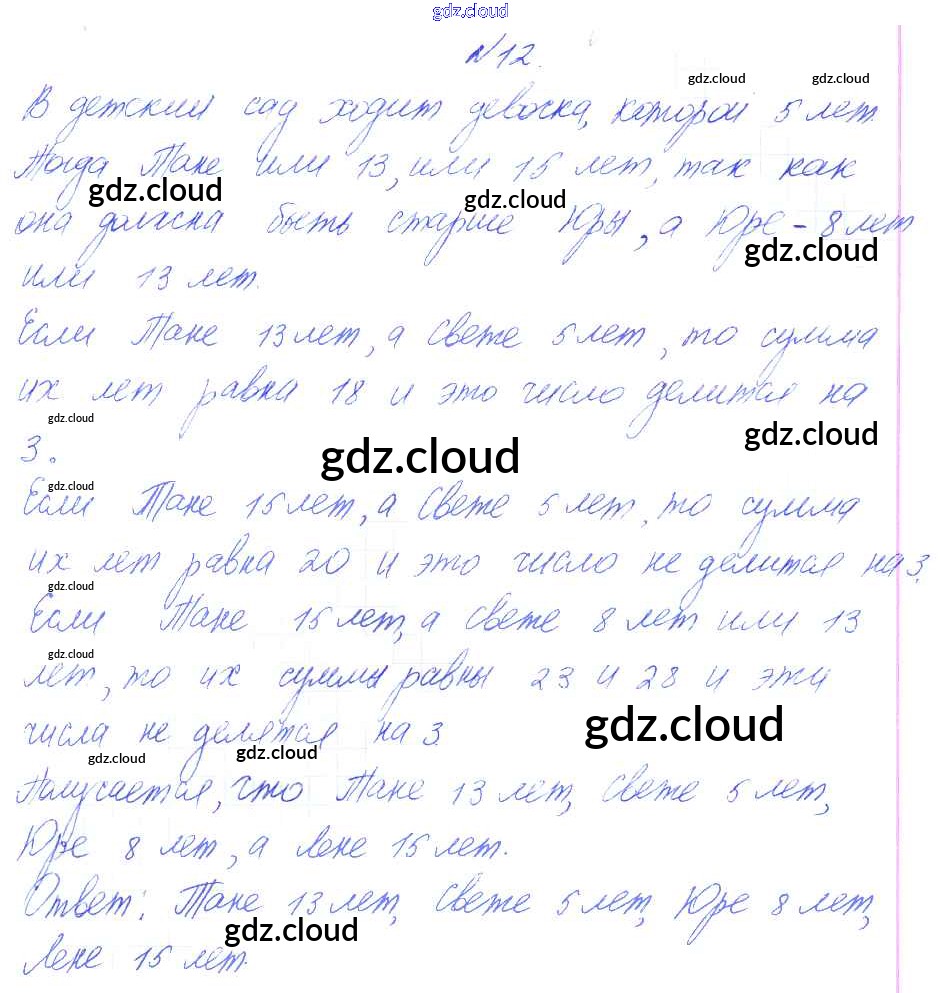 gdz.cloud
№12.
gdz.cloud gdz.cloud
В детский сад ходит девочка, которой 5 лет.
Тогда Тане или 13, или 15 лет, так как
gdz.cloud gdz.cloud
она должна быть старше Юры, а Юре - 8 лет
gdz.cloud
или 13 лет.
Если Тане 13 лет, а Свете 5 лет, то сумма
их лет равна 18 и это число делится на
gdz.cloud gdz.cloud
3.
gdz.cloud
gdz.cloud
Если Тане 15 лет, а Свете 5 лет, то сумма
их лет равна 20 и это число не делится на 3.
gdz.cloud
Если Тане 15 лет, а Свете 8 лет или 13
gdz.cloud
лет, то их суммы равны 23 и 28 и эти
gdz.cloud
числа не делятся на 3.
gdz.cloud gdz.cloud
Получается, что Тане 13 лет, Свете 5 лет,
Юре 8 лет, а Лене 15 лет.
Ответ: Тане 13 лет, Свете 5 лет, Юре 8 лет,
gdz.cloud
Лене 15 лет.